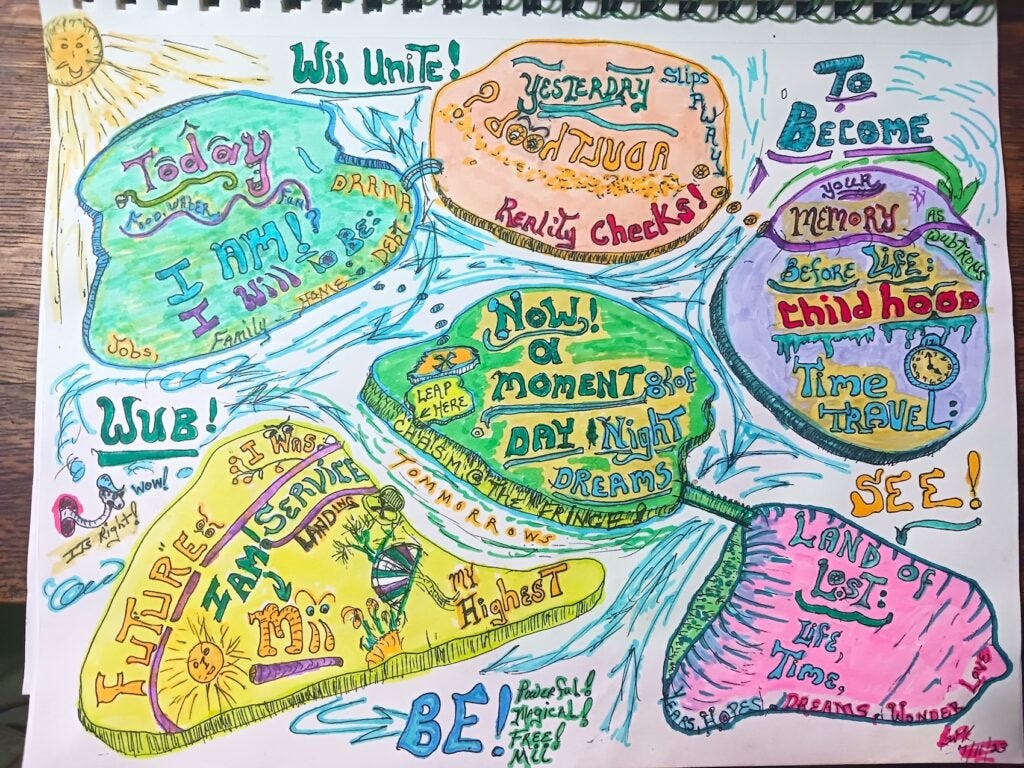 Wii Unite!
Today
or
Fun
I AM!?
I Will To Be:
DRAMA
DEBT
HOME
FAMILY
Jobs,
YESTERDAY
Slips
AWAY
ADULTHOOD
Reality Checks!
To
Become
your
MEMORY
AS
BEFORE LIFE:
Childhood
Time
TRAVEL:
NOW!
a
MOMENT
of
DAY & Night
DREAMS
LEAP
HERE
CHASM OF THE FRINGE
TOMMORROWS
WUB!
WOW!
Its Right!
SEE!
FUTURE
I WAS
I AM! SERVICE
LANDING
Mii
MY
HIGHEST
LAND of
LOST:
Life,
Time,
HOPES,
DREAMS, WONDER
Love
BE!
Powerful!
Magical!
FREE!
7/11/23